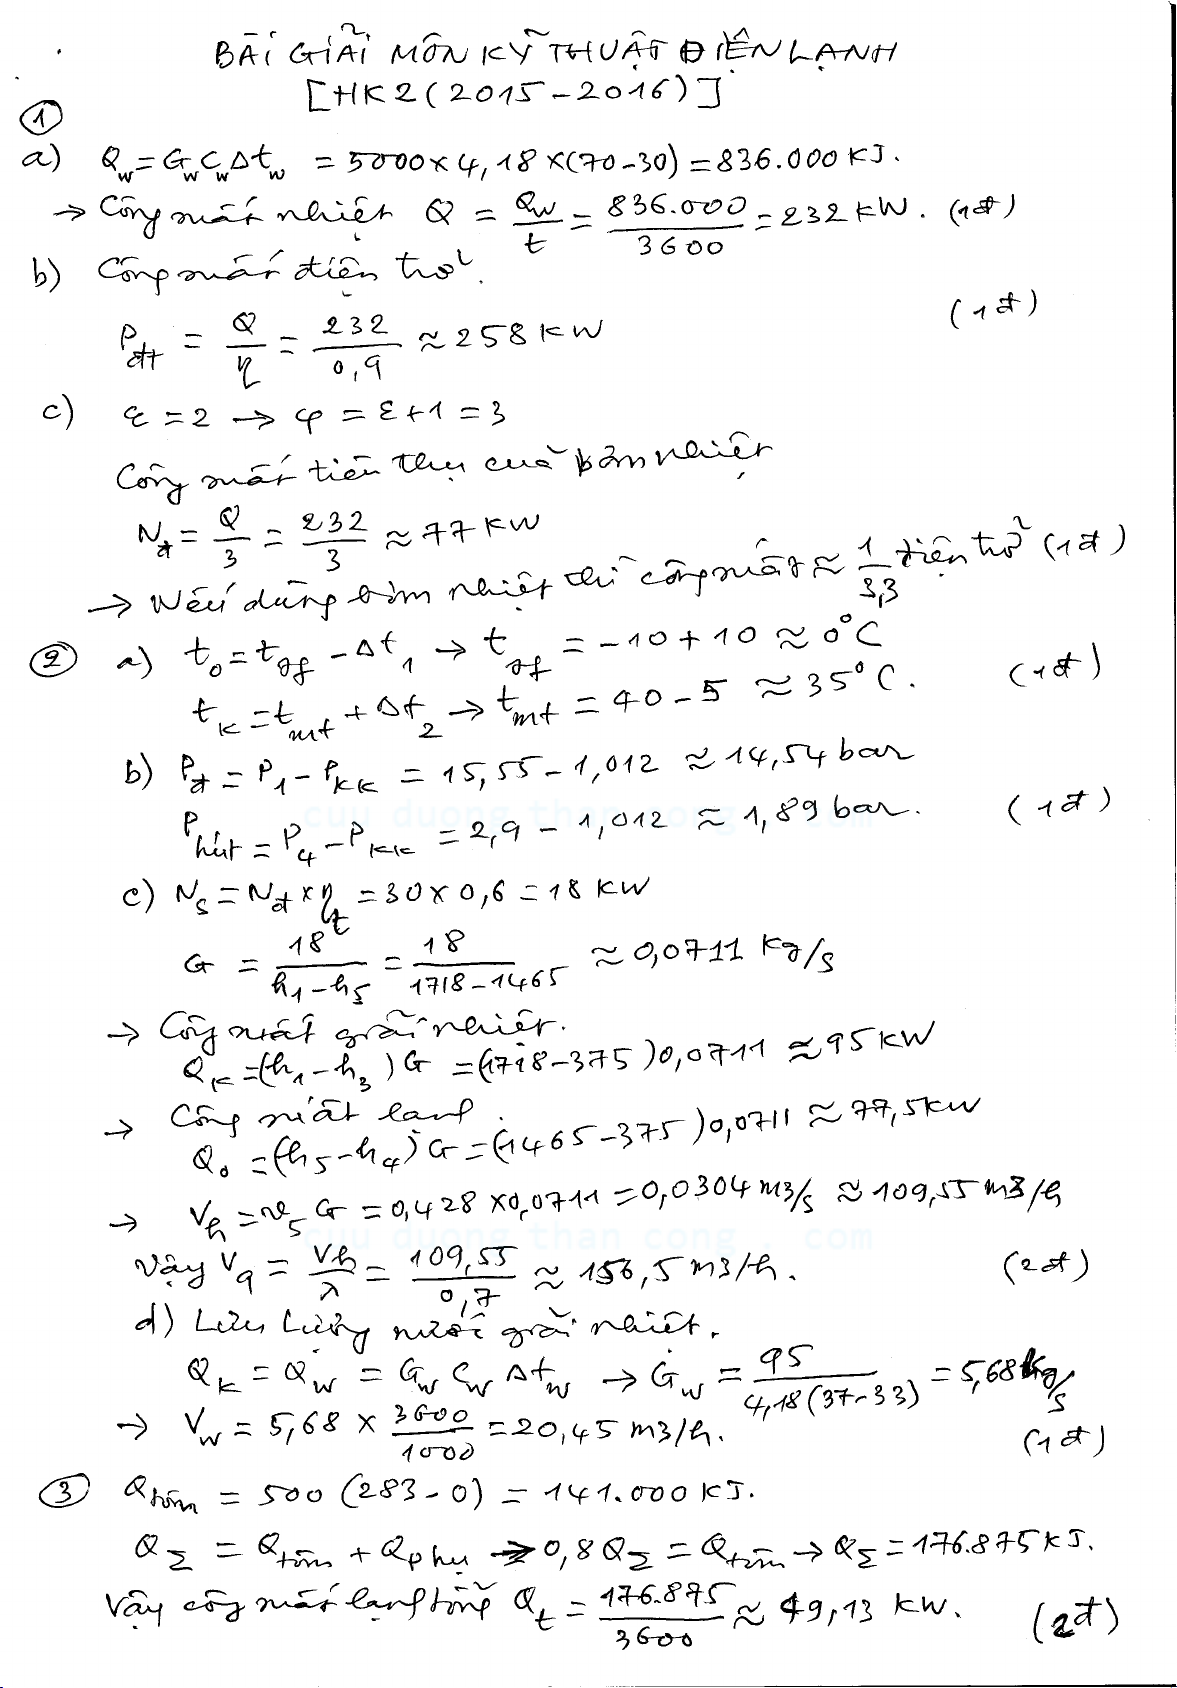 BÀI GIẢI MÔN KỸ THUẬT ĐIỆN LẠNH
[HK2(2015-2016)]
①
a) Qw = GwCwΔtw = 5000x4,18x(70-30) = 836.000 KJ.
→ Công suất nhiệt Q = Qw/t = 836.000/3600 = 232 KW. (1đ)
b) Công suất điện trở.
Pđt = Q/η = 232/0,9 ≈ 258 KW (1đ)
c) ε = 2 → φ = ε+1 = 3
Công suất tiêu thụ của bơm nhiệt
Nđ = Q/3 = 232/3 ≈ 77 KW
→ Nếu dùng bơm nhiệt thì công suất ≈ 1/3,3 điện trở (1đ)
② a) t₀ = tgf - Δt₁ → tgf = -10+10 ≈ 0°C
tk = tmt + Δt₂ → tmt = 40-5 ≈ 35°C. (1đ)
b) Pđ = P₁ - Pkk = 15,55-1,012 ≈ 14,54 bar
cuu duong than cong . com
Phút = P₄ - Pkk = 2,9 - 1,012 ≈ 1,89 bar. (1đ)
c) Ns = Nđ x ηt = 30x0,6 = 18 KW
G = 18/(h₁-h₅) = 18/(1718-1465) ≈ 0,0711 Kg/s
→ Công suất giải nhiệt.
Qk = (h₁-h₃)G = (1718-375)0,0711 ≈ 95 KW
→ Công suất lạnh.
Q₀ = (h₅-h₄)G = (1465-375)0,0711 ≈ 77,5 KW
→ Vh = v₅G = 0,428x0,0711 = 0,0304 m3/s ≈ 109,55 m3/h
cuu duong than cong . com
Vậy Vq = Vh/λ = 109,55/0,7 ≈ 156,5 m3/h. (2đ)
d) Lưu lượng nước giải nhiệt.
Qk = Qw = GwCwΔtw → Gw = 95/4,18(37-33) = 5,68 Kg/s
→ Vw = 5,68 x 3600/1000 = 20,45 m3/h. (1đ)
③ Qtôm = 500(283-0) = 141.000 KJ.
QΣ = Qtôm + Qphụ → 0,8QΣ = Qtôm → QΣ = 176.875 KJ.
Vậy công suất lạnh tổng Qt = 176.875/3600 ≈ 49,13 KW. (2đ)